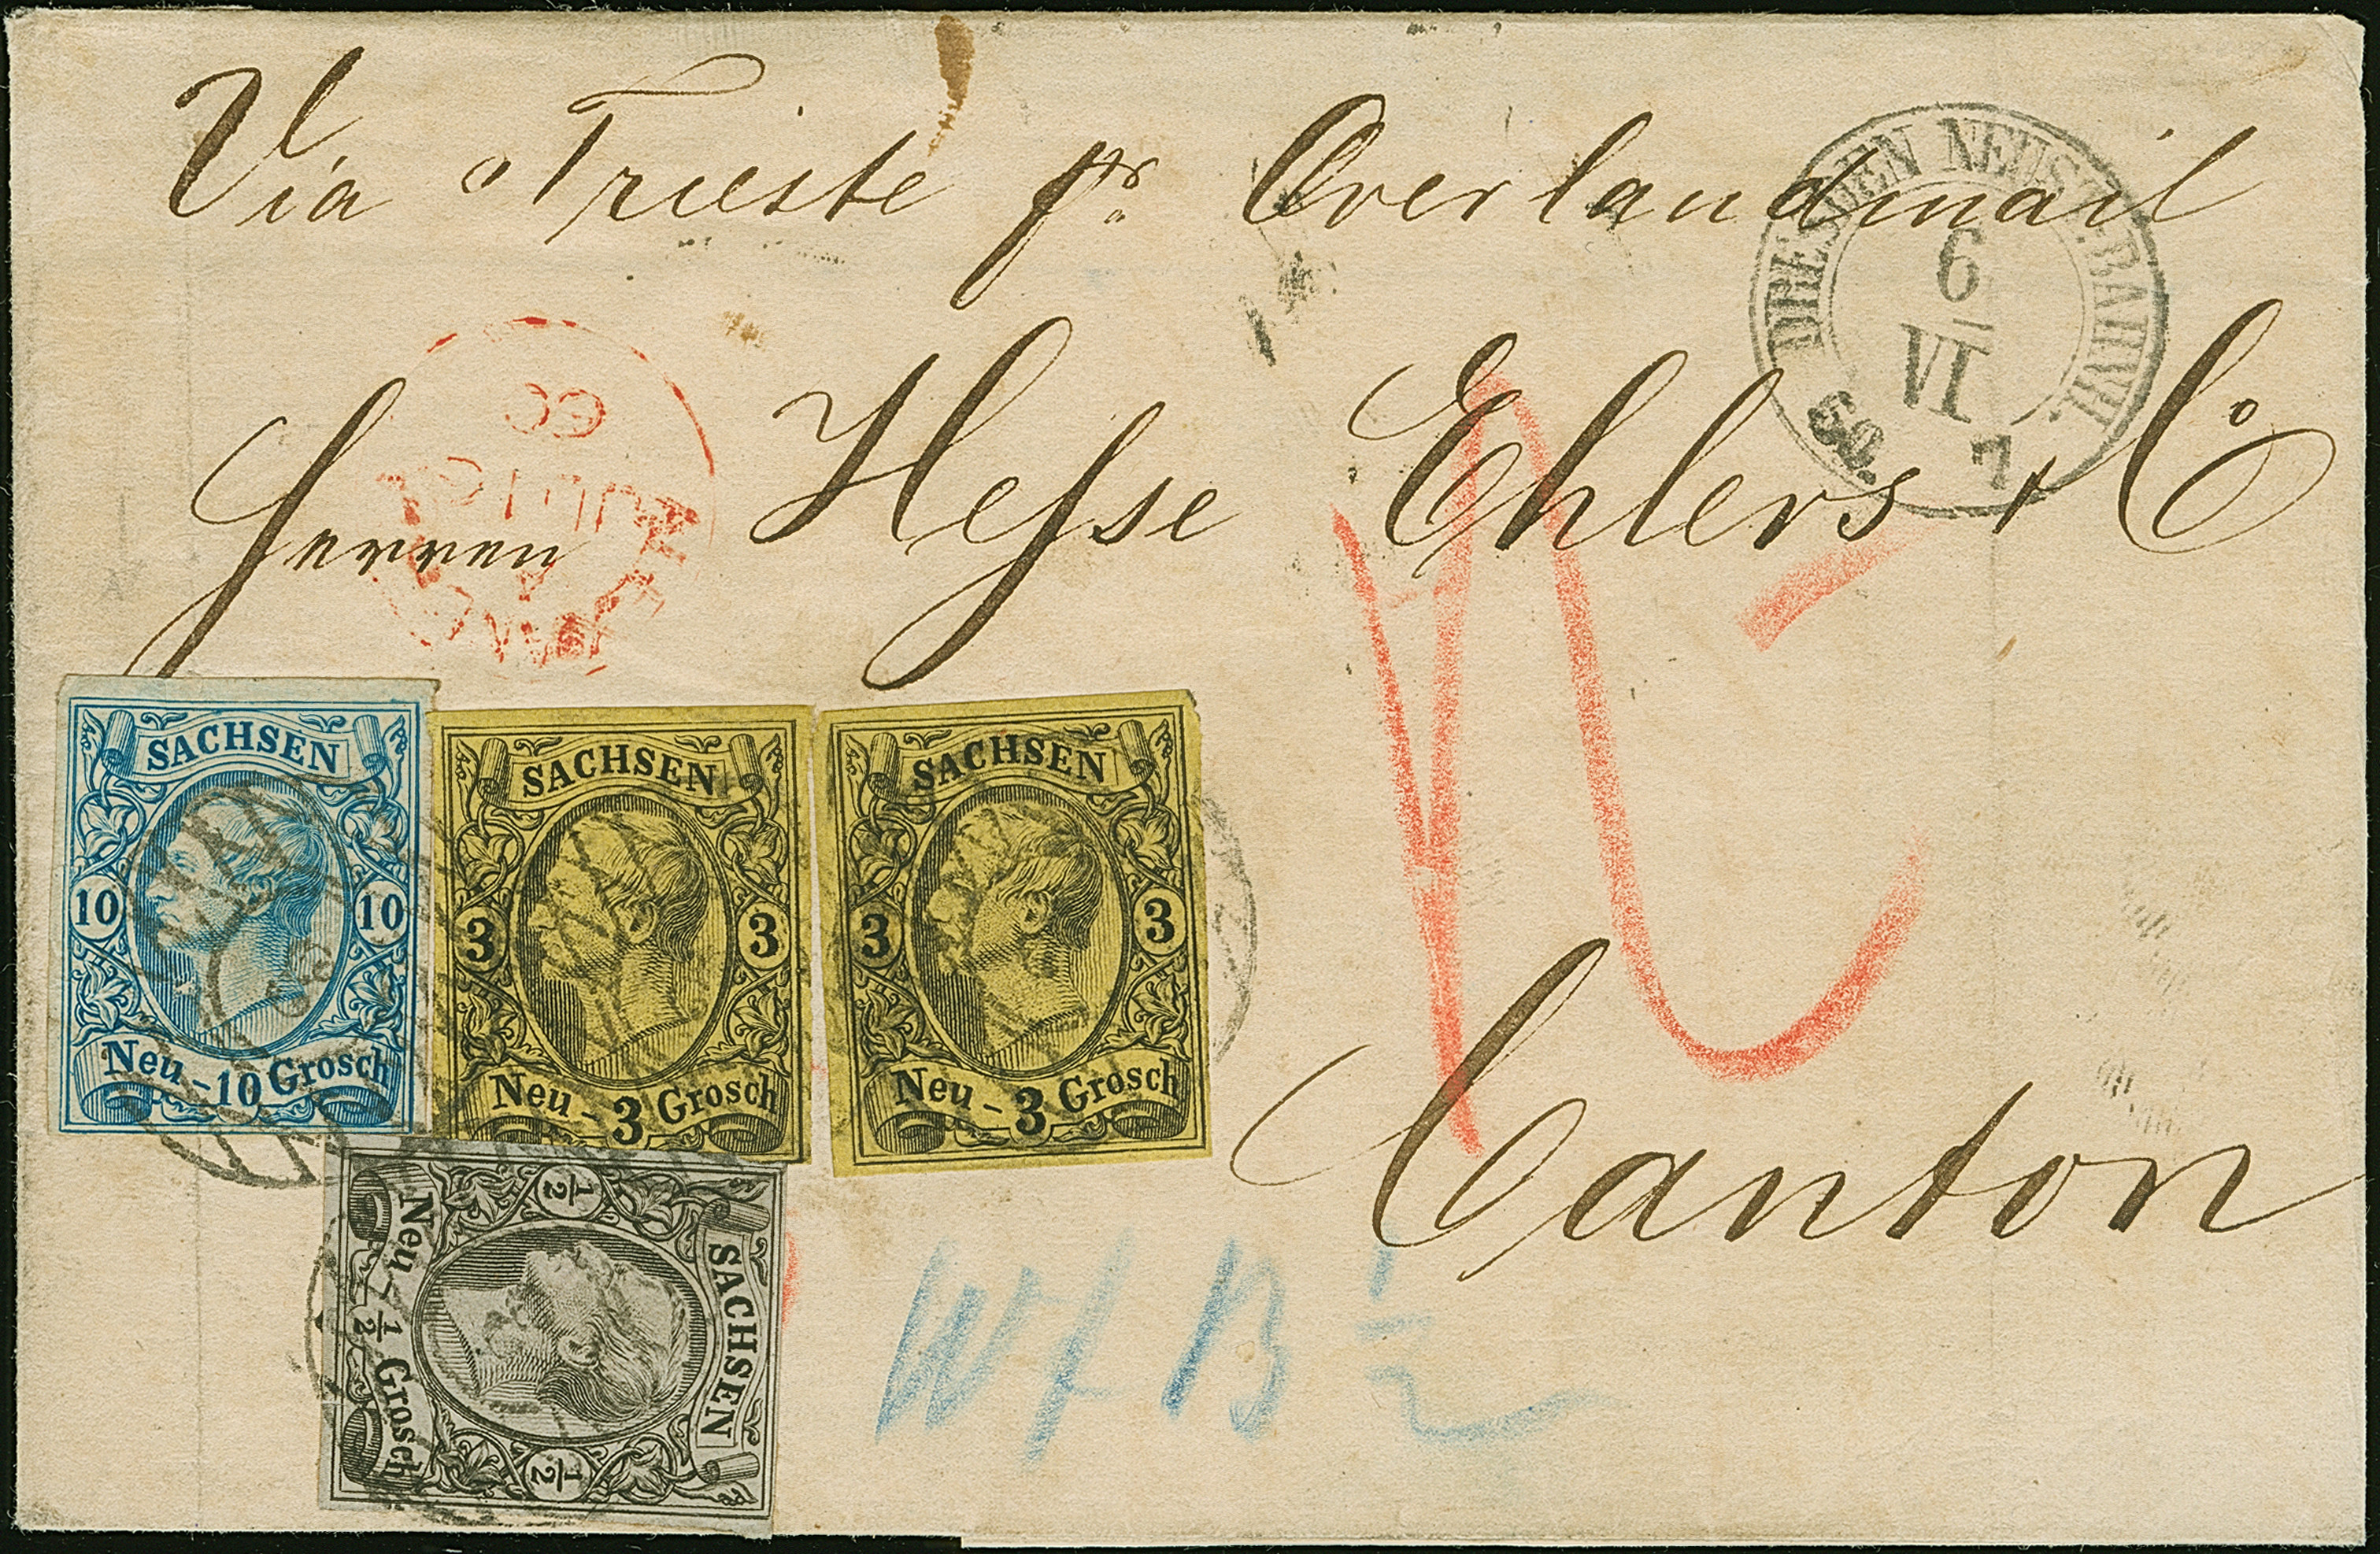 Via Trieste pr. Overlandmail
DRESDEN NEUST. BAHNH.
6
VI
7
60
Herren Hesse Ehlers & Co
SACHSEN
10 10
Neu-10 Grosch
SACHSEN
3 3
Neu-3 Grosch
SACHSEN
3 3
Neu-3 Grosch
Canton
SACHSEN
½ ½
Neu-½ Grosch